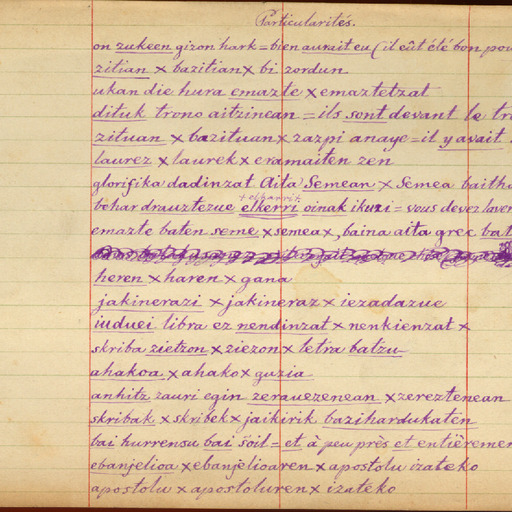 Particularités.
on zukeen gizon hark = bien aurait eu (il eût été bon pou
zitian × bazitian × bi zordun
ukan die hura emazte × emaztetzat
dituk trono aitzinean = ils sont devant le tr
zituan × bazituan × zazpi anaye = il y avait
laurez × laurek × eramaiten zen
glorifika dadinzat Aita Semean × Semea baitha
+ elkarri
behar drauztezue elkerri oinak ikuzi = vous devez laver
emazte baten seme × semea ×, baina aita grec bat
heren × haren × gana
jakinerazi × jakineraz × iezadazue
iuduei libra ez nendinzat × nenkienzat ×
skriba zietzon × ziezon × letra batzu
ahakoa × ahako × guzia
anhitz zauri egin zerauezenean × zereztenean
skribak × skribek × jaikirik bazihardukaten
bai hurrensu bai soil = et à peu près et entièremen
ebanjelioa × ebanjelioaren × apostolu izateko
apostolu × apostoluren × izateko